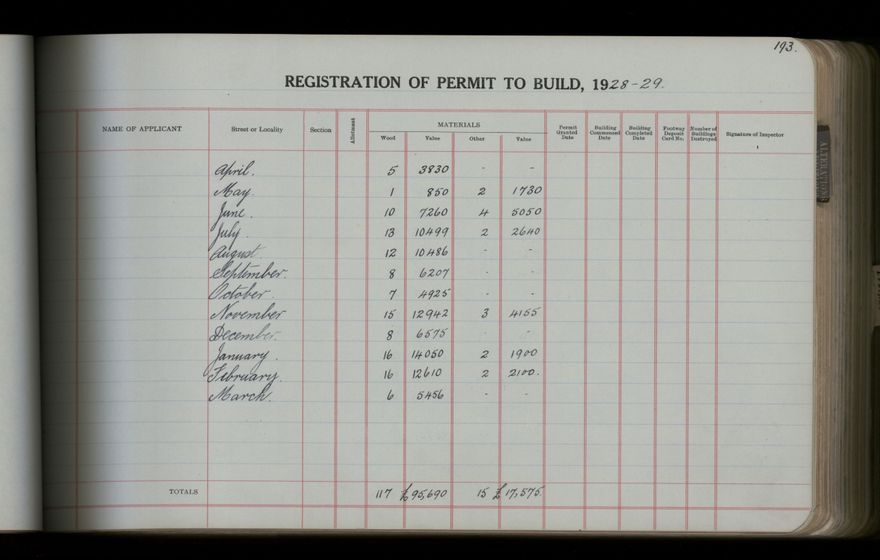 193.
REGISTRATION OF PERMIT TO BUILD, 1928-29.
NAME OF APPLICANT Street or Locality Section Allotment MATERIALS Wood Value Other Value Permit Granted Date Building Commenced Date Building Completed Date Footway Deposit Card No. Number of Buildings Destroyed Signature of Inspector
April. 5 3830 - -
May. 1 850 2 1730
June. 10 7260 4 5050
July. 13 10499 2 2640
August. 12 10486 - -
September. 8 6207 - -
October. 7 4925 - -
November 15 12942 3 4155
December. 8 6575 - -
January. 16 14050 2 1900
February. 16 12610 2 2100.
March. 6 5456 - -
TOTALS 117 £95,690 15 £17,575.
ALTERATIONS